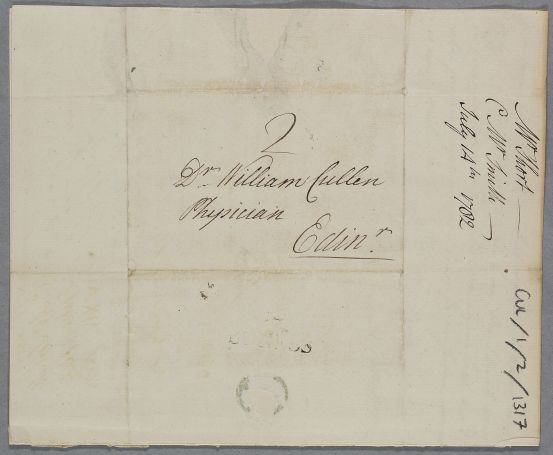 2
Dr. William Cullen
Physician
Edinr.
Mr Short
C Mr Smith
July 14th 1782
Cul/1/2/1317